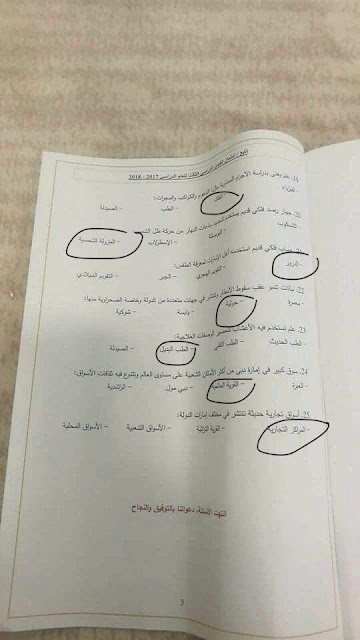 تابع / امتحان الفصل الدراسي الثالث للعام الدراسي 2017 - 2018
19. علم يعنى بدراسة الأجرام السماوية مثل النجوم والكواكب والمجرات:
- الفيزياء - الفلك - الطب - الصيدلة
20. جهاز رصد فلكي قديم يستخدم لتحديد ساعات النهار من حركة ظل الشمس:
- التلسكوب - البوصلة - الإسطرلاب - المزولة الشمسية
21. حساب فلكي قديم استخدمه أهل الإمارات لمعرفة الطقس:
- الدرور - التقويم الهجري - الجبر - التقويم الميلادي
22. نباتات تنمو عقب سقوط الأمطار وتنتشر في جهات متعددة من الدولة وخاصة الصحراوية منها:
- معمرة - حولية - شوكية
23. علم تستخدم فيه الأعشاب لتحضير الوصفات العلاجية:
- الطب الحديث - الطب النفسي - الطب البديل - الصيدلة
24. سوق كبير في إمارة دبي من أكثر الأماكن الشعبية على مستوى العالم وتتنوع فيه ثقافات الأسواق:
- القرية العالمية - دبي مول - الراشدية
25. أسواق تجارية حديثة تنتشر في مختلف إمارات الدولة:
- المراكز التجارية - القرية التراثية - الأسواق الشعبية - الأسواق المحلية
انتهت الأسئلة، دعواتنا بالتوفيق والنجاح
3